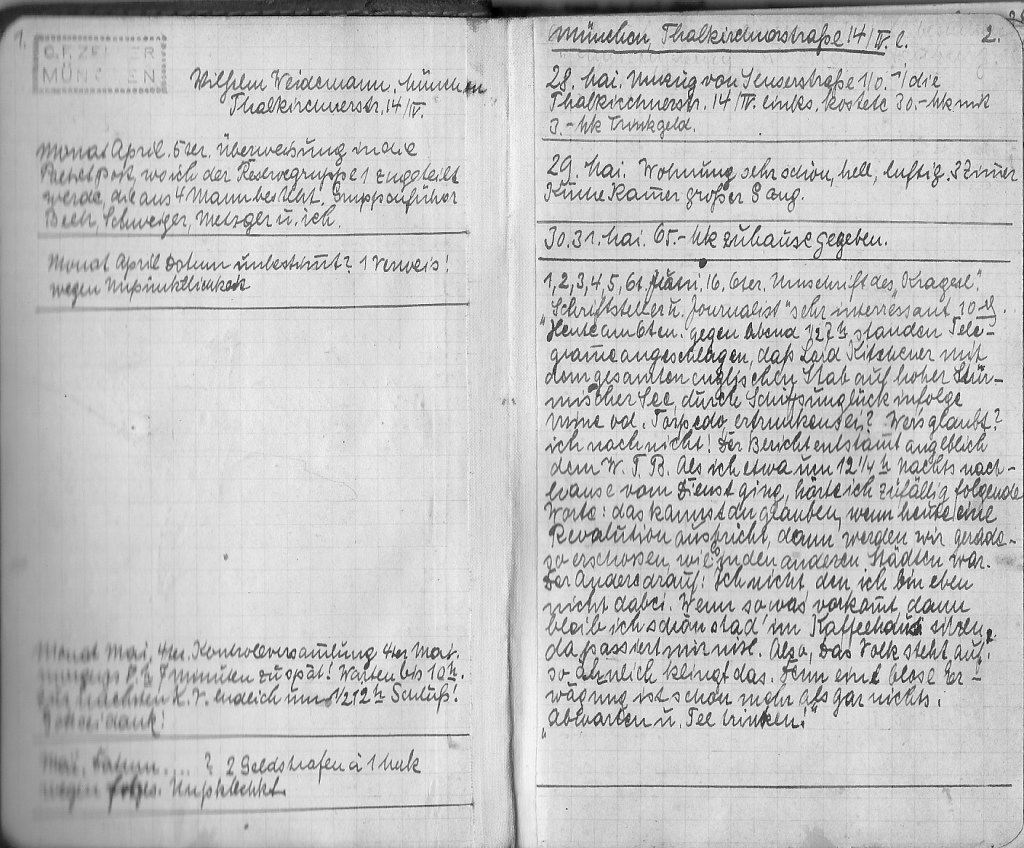 1.
G. F. ZELLER
MÜNCHEN
Wilhelm Weidemann, München
Thalkirchnerstr. 14/IV.
Monat April. 5ter. Überweisung in die
Packetpost, wo ich der Reservegruppe 1 zugeteilt
werde, die aus 4 Mann besteht. Gruppenführer
Beck, Schweiger, Metzger u. ich.
Monat April Datum unbestimt? 1 Verweis!
wegen Unpünktlichkeit
Monat Mai, 4ter. Kontrollversamlung 4ter Mai.
morgens 8 h 7 minuten zu spät! Warten bis 10 h.
zur nächsten K.V. endlich um 1/2 12 h Schluß!
Gott sei dank!
Mai, Datum .... ? 2 Geldstrafen à 1 Mark
wegen Unpktlchkt.
München, Thalkirchnerstraße 14/IV. l.
2.
28. Mai. Umzug von Senserstraße 1/0.-1 in die
Thalkirchnerstr. 14/IV. links. kostete 30.- Mk mit
3.- Mk Trinkgeld.
29. Mai. Wohnung sehr schön, hell, luftig. 3 Zimer
Küche Kamer großer Gang.
30. 31. Mai. 65.- Mk zuhause gegeben.
1, 2, 3, 4, 5, 6t. Juni, 16. 6ter. Umschrift des „Kragerl".
„Schriftsteller u. Journalist" sehr interressant 30 ₰.
Heute am 6ten. gegen Abend 1/2 7 h standen Tele-
grame angeschlagen, daß Lord Kitchener mit
dem gesamten englischen Stab auf hoher Stür-
mischer See, durch Schiffsunglück infolge
mine od. Torpedo ertrunken sei? Wers glaubt?
ich noch nicht! Der Bericht entstamt angeblich
dem W. T. B. Als ich etwa um 12 1/4 h Nachts nach-
hause vom Dienst ging, hörte ich zufällig folgende
Worte: das kannst du glauben, wenn heute eine
Revolution ausbricht, dann werden wir gerade-
so erschossen, wie's in den anderen Städten war.
Der Andere drauf: Ich nicht, den ich bin eben
nicht dabei. Wenn so was vorkomt, dann
bleib ich schön stad' im Kaffeehaus sitzen,
da passiert mir nixl. Also, das Volk steht auf!
so ähnlich klingt das. Denn eine blose Er-
wägung ist schon mehr als gar nichts.
„Abwarten u. Tee trinken!"